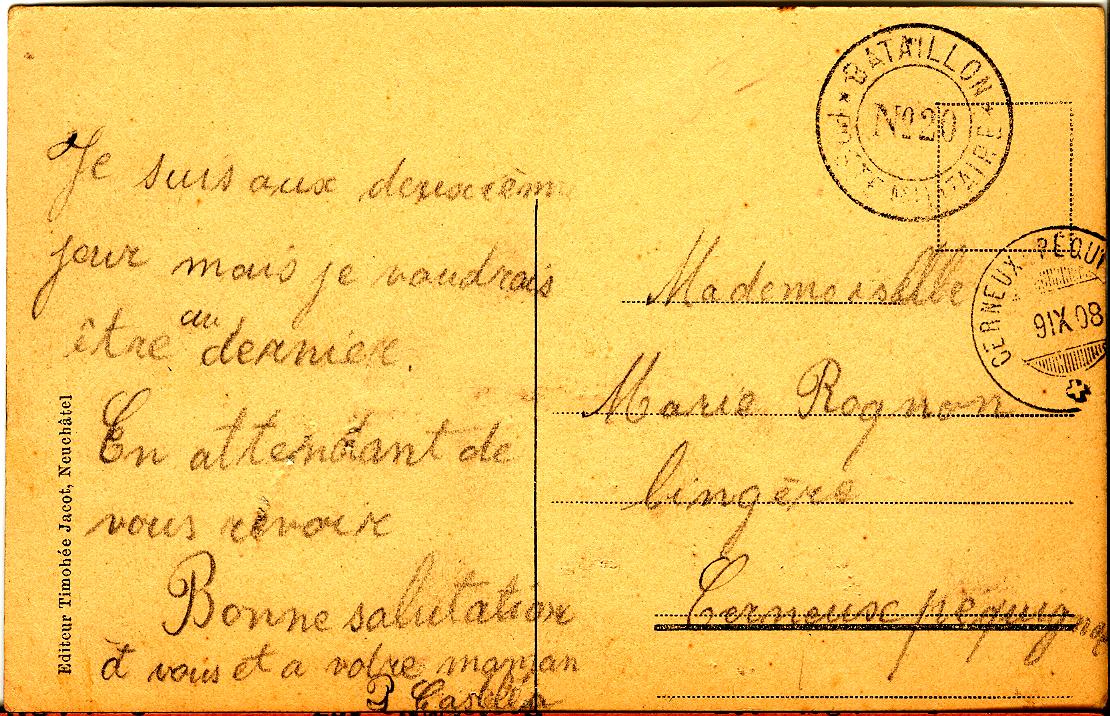 Je suis aux deuxième
jour mais je voudrais
être au dernier.
En attendant de
vous revoir
Bonne salutation
à vous et a votre maman
Editeur Timohée Jacot, Neuchâtel
★ BATAILLON ★
No 20
POSTE MILITAIRE
CERNEUX-PÉQUI
9 IX 08
Mademoiselle
Marie Rognon
lingère
Cerneux péquignot